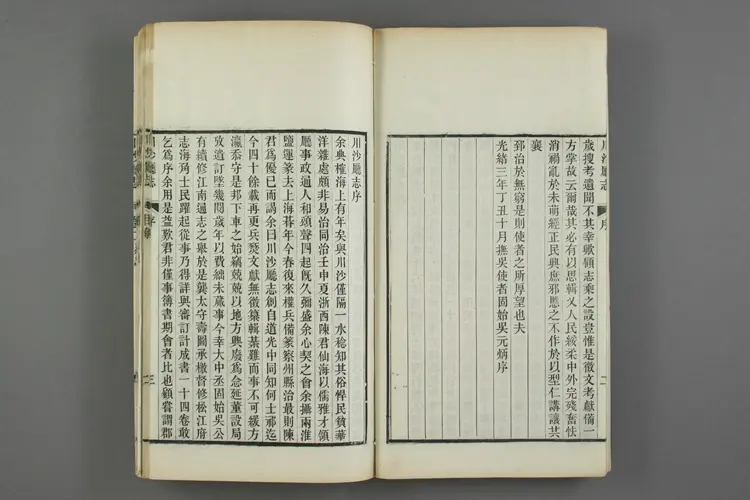 歲搜考遺聞不其幸歟顧志乘之設豈惟是徵文考獻備一
方掌故云爾哉其必有以思輯乂人民綏柔中外完殘奮怯
消禍亂於未萌經正民興庶邪慝之不作於以型仁講讓共
襄
郅治於無窮是則使者之所厚望也夫
光緒三年丁丑十月撫吳使者固始吳元炳序
川沙廳志
序
二
川沙廳志序
余典榷海上有年矣與川沙僅隔一水稔知其俗悍民貧華
洋雜處頗非易治同治壬申夏浙西陳君仙海以儒雅才領
廳事政通人和頌聲四起旣久彌盛余心契之會余攝兩淮
鹽運篆去上海朞年今春復來權兵備篆察州縣治最則陳
君爲優已而謁余曰川沙廳志創自道光中同知何士祁迄
今四十餘載再更兵燹文獻無徵纂輯綦難而事不可緩方
瀛忝守是邦下車之始竊兢兢以地方興廢爲念延董設局
攷遺訂墜幾閱歲年以費絀未蕆事今幸大中丞固始吳公
有續修江南通志之舉於是龔太守壽圖承檄督修松江府
志海堧士民躍起從事乃得詳與審訂計成書一十四卷敢
乞爲序余用是益歎君非僅事簿書期會者比也顧嘗謂郡
川沙廳志
序
三